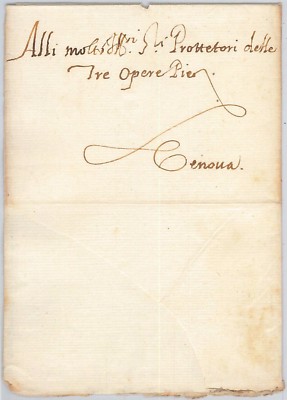 Alli molt Ill.ri S.ri Prottetori delle
Tre Opere Pie
Genova.